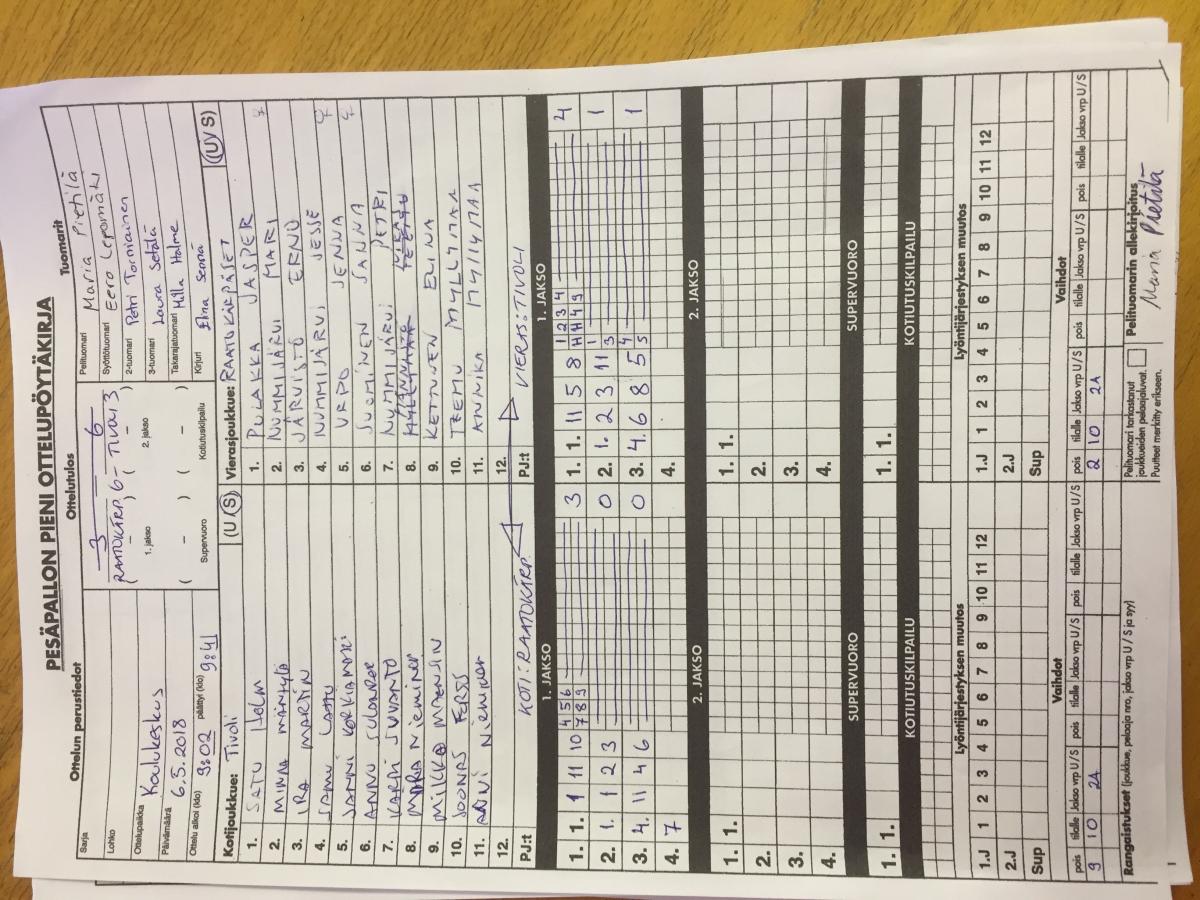 PESÄPALLON PIENI OTTELUPÖYTÄKIRJA
Ottelun perustiedot
Sarja
Lohko
Ottelupaikka Koulukeskus
Päivämäärä 6.5.2018
Ottelu alkoi (klo) 9:02 päättyi (klo) 9:41
Ottelutulos
3 – 6
RAATOKÄRP. 6 – TIVOLI 3
( – ) ( – )
1. jakso 2. jakso
( – ) ( – )
Supervuoro Kotiutuskilpailu
Tuomarit
Pelituomari Maria Pietilä
Syöttötuomari Eero Lepomäki
2-tuomari Petri Torniainen
3-tuomari Laura Setälä
Takarajatuomari Milla Holme
Kirjuri Elina
Kotijoukkue: Tivoli (U/S)
1. SATU HOLM
2. MINNA MÄNTYLÄ
3. IRA MARTIN
4. SAMU LATTU
5. JANNI
6. ANNU
7. KARRI SUVANTO
8. NIEMINEN
9. MIKKO MARNIN
10. JOONAS FERSS
11. ANNI NIEMINEN
12.
PJ:t KOTI: RAATOKÄRP.
Vierasjoukkue: RAATOKÄRPÄSET (U/S)
1. PULAKKA JASPER
2. NUMMIJÄRVI MARI
3. JÄRVISTÖ ERNO
4. NUMMIJÄRVI JESSE
5. URPO JENNA
6. SUOMINEN SANNA
7. NUMMIJÄRVI PETRI
8.
9. KETTUNEN ELINA
10. TEEMU MYLLYMAA
11. ANNIKA MYLLYMAA
12.
PJ:t VIERAS: TIVOLI
1. JAKSO
1. 1. 1 11 10 4 5 6 7 8 9 3
2. 1. 1 2 3 0
3. 4. 11 4 6 0
4. 7
1. JAKSO
1. 1. 11 5 8 1 2 3 4 11 11 4 9 4
2. 1. 2 3 11 1 3 1
3. 4. 6 8 5 4 5 1
4.
2. JAKSO
1. 1.
2.
3.
4.
2. JAKSO
1. 1.
2.
3.
4.
SUPERVUORO
1. 1.
SUPERVUORO
1. 1.
KOTIUTUSKILPAILU
KOTIUTUSKILPAILU
Lyöntijärjestyksen muutos
1.J 1 2 3 4 5 6 7 8 9 10 11 12
2.J
Sup
Lyöntijärjestyksen muutos
1.J 1 2 3 4 5 6 7 8 9 10 11 12
2.J
Sup
Vaihdot
pois tilalle Jakso vrp U/S pois tilalle Jakso vrp U/S pois tilalle Jakso vrp U/S
9 10 2A
Vaihdot
pois tilalle Jakso vrp U/S pois tilalle Jakso vrp U/S pois tilalle Jakso vrp U/S
2 10 2A
Rangaistukset (joukkue, pelaaja nro, jakso vrp U / S ja syy)
Pelituomari tarkastanut
joukkueiden pelaajaluvat.
Puutteet merkitty erikseen.
Pelituomarin allekirjoitus
Maria Pietilä